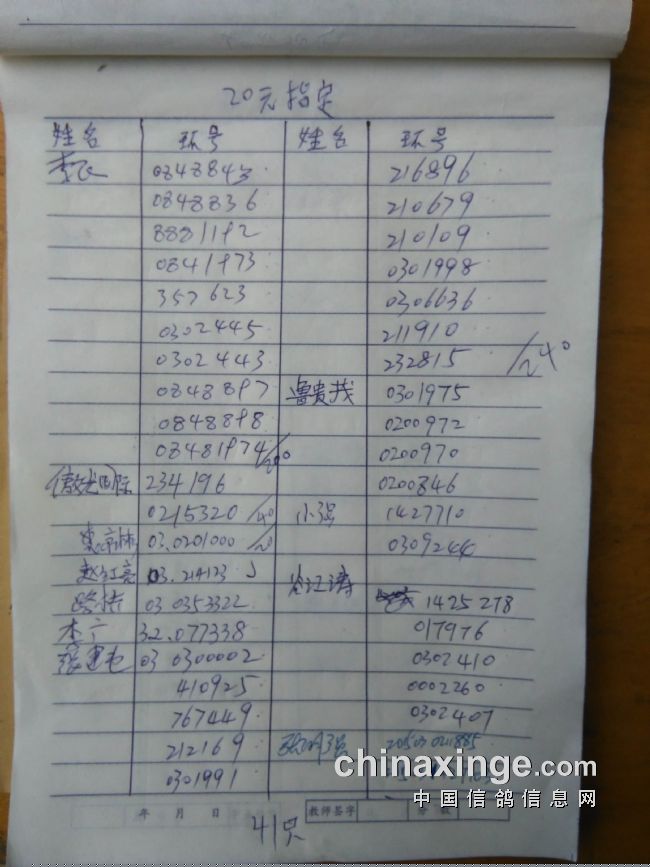 20元指定
姓名 环号 姓名 环号
李飞 0848843 216896
0848836 210679
8881192 210109
0841973 0301998
357623 0306636
0302445 211910
0302443 232815 /240
0848897 鲁贵找 0301975
0848898 0200972
08481974 /200 0200970
傲龙国际 234196 0200846
0215320 /40 小强 1427710
03.0201000 /20 0309244
赵红亮 03.214123
路 03 0353322 1425278
李广 32.077338 017976
张建 03 0300002 0302410
410925 0002260
767449 0302407
212169
0301991
chinaxinge.com
中国信鸽信息网
年 月 日 教师签字
41只